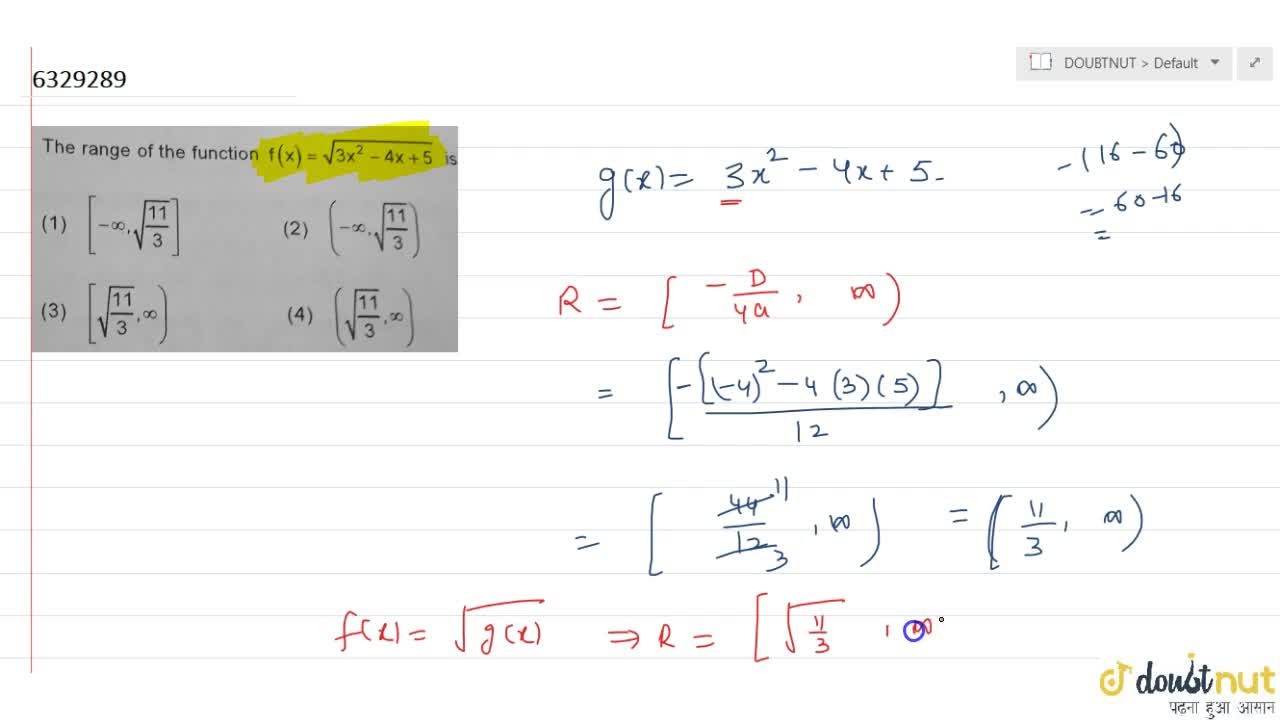 6329289
DOUBTNUT > Default
The range of the function f(x) = √(3x² − 4x + 5) is
(1) [−∞, √(11/3)]
(2) (−∞, √(11/3))
(3) [√(11/3), ∞)
(4) (√(11/3), ∞)
g(x) = 3x² − 4x + 5
−(16 − 60)
= 60 − 16
=
R = [−D/4a, ∞)
= [−[(−4)² − 4(3)(5)]/12, ∞)
= [44/12 11/3, ∞) = [11/3, ∞)
f(x) = √g(x) ⇒ R = [√(11/3), ∞
doubtnut
पढ़ना हुआ आसान